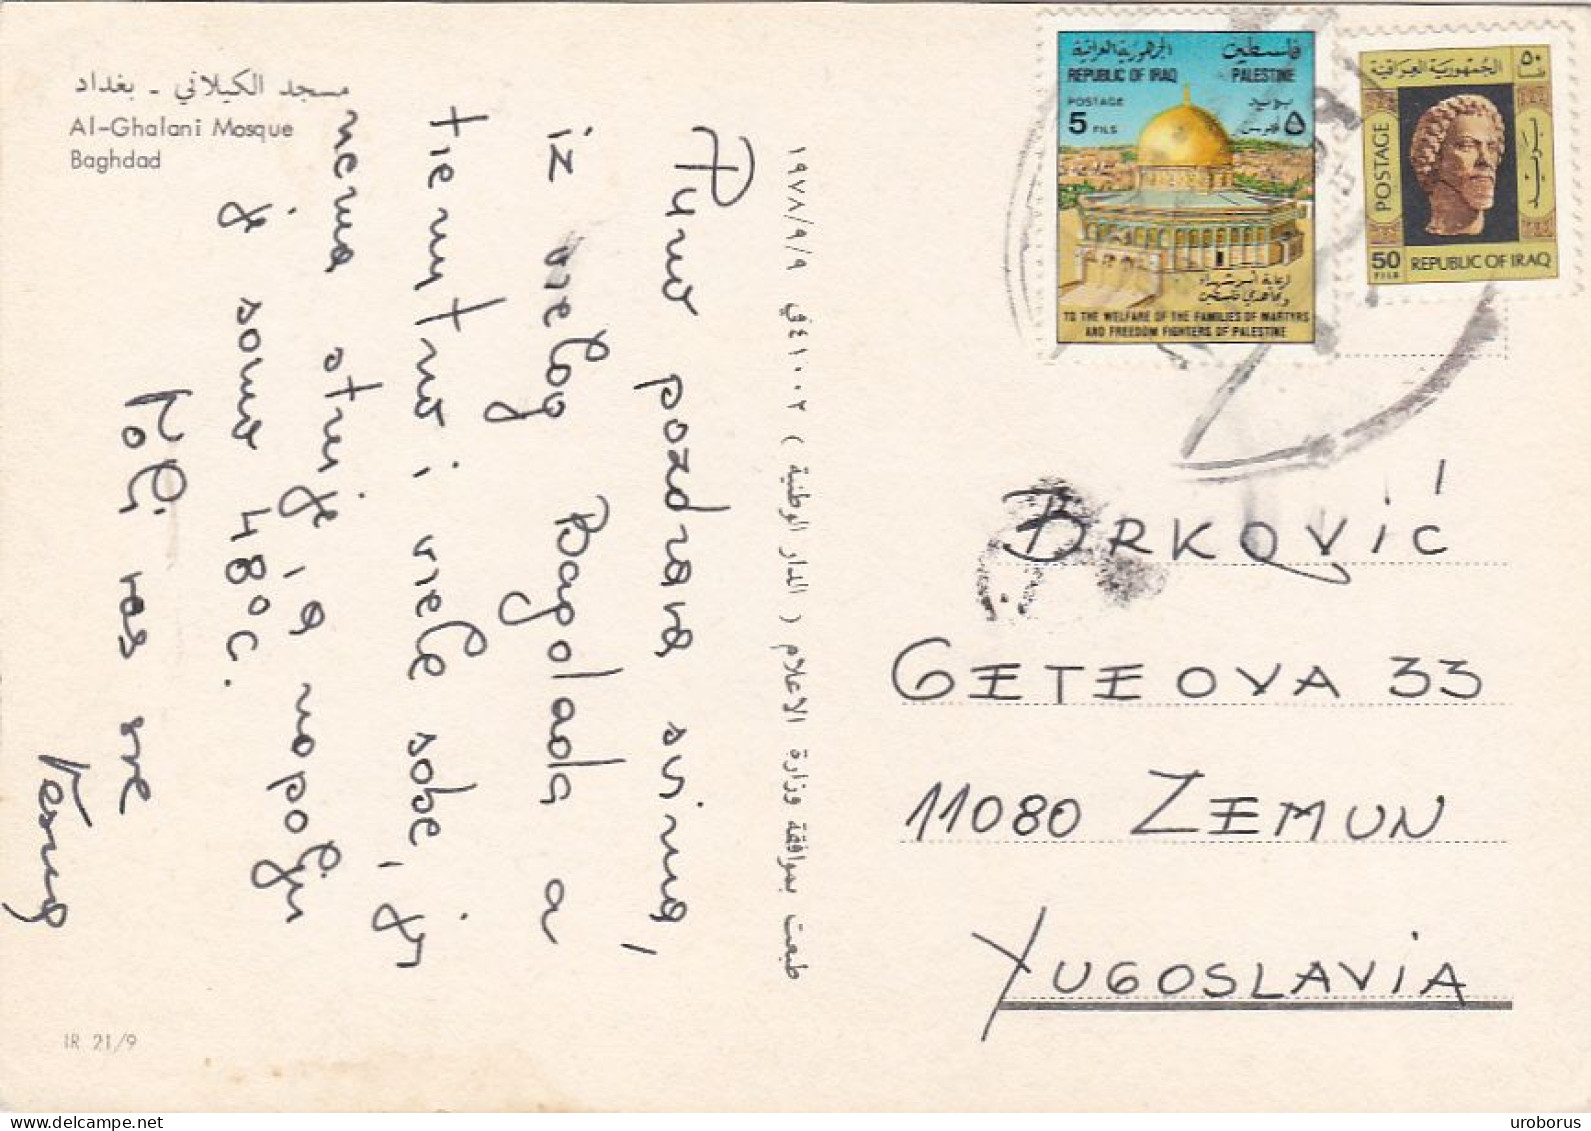 مسجد الكيلاني - بغداد
Al-Ghalani Mosque
Baghdad
Puno pozdrava svima,
iz vrelog Bagdada a
trenutno i vrele sobe, jer
nema struje, a napolju
je samo 48°C.
Voli vas sve
طبعت بموافقة وزارة الاعلام ( الدار الوطنية ) ٤١٠٠٢ في ١٩٧٨/٩/٩
الجمهورية العراقية
فلسطين
REPUBLIC OF IRAQ
PALESTINE
POSTAGE
بريد
5 FILS
٥ فلوس
لرعاية أسر شهداء
ومجاهدي فلسطين
TO THE WELFARE OF THE FAMILIES OF MARTYRS
AND FREEDOM FIGHTERS OF PALESTINE
الجمهورية العراقية
٥٠
POSTAGE
بريد
50
FILS
REPUBLIC OF IRAQ
BRKOVIĆ
GETEOVA 33
11080 ZEMUN
YUGOSLAVIA
IR 21/9
uroborus